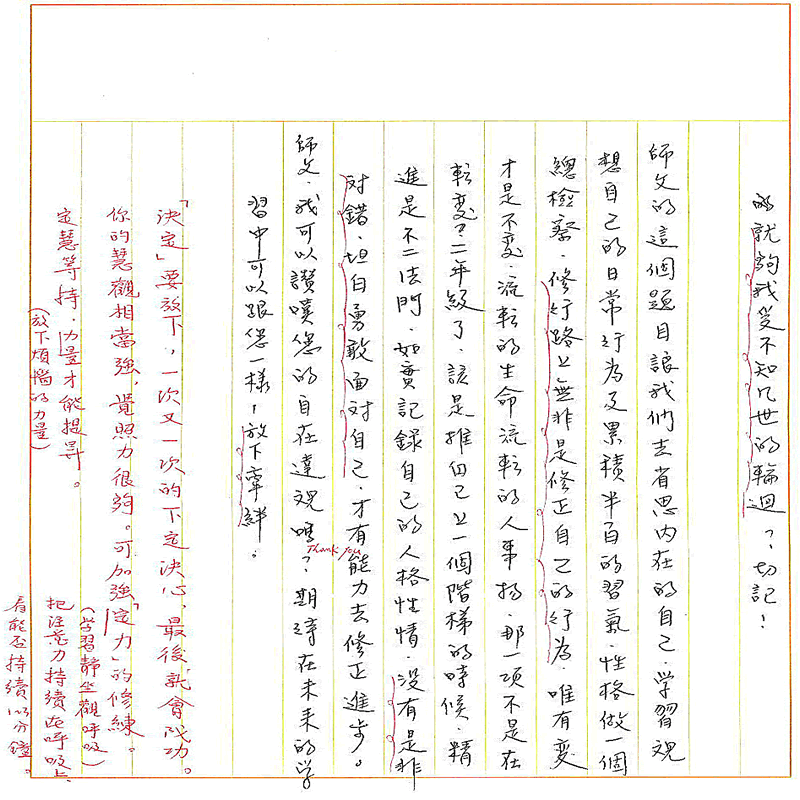 就夠我受不知幾世的輪迴?、切記!
師父的這個題目讓我們去省思內在的自己、學習觀
想自己的日常行為及累積半百的習氣、性格做一個
總檢察、修行路上無非是修正自己的行為、唯有變
才是不變、流転的生命流転的人事物、那一項不是在
転变?二年級了、該是推自己上一個階梯的時候、精
進是不二法門、如實記錄自己的人格性情、沒有是非
对錯、坦白勇敢面对自己、才有能力去修正進步。
師父、我可以讚嘆您的自在達观嗎?期待在未来的学
Thank you
習中可以跟您一樣!放下牽絆。
「決定」要放下,一次又一次的下定決心,最後就會成功。
你的慧觀相當強,覺照力很夠。可加強「定力」的修練。
定慧等持,力量才能提昇。
(放下煩惱的力量)
(学習靜坐觀呼吸)
把注意力持續在呼吸上
看能否持續 分鐘。